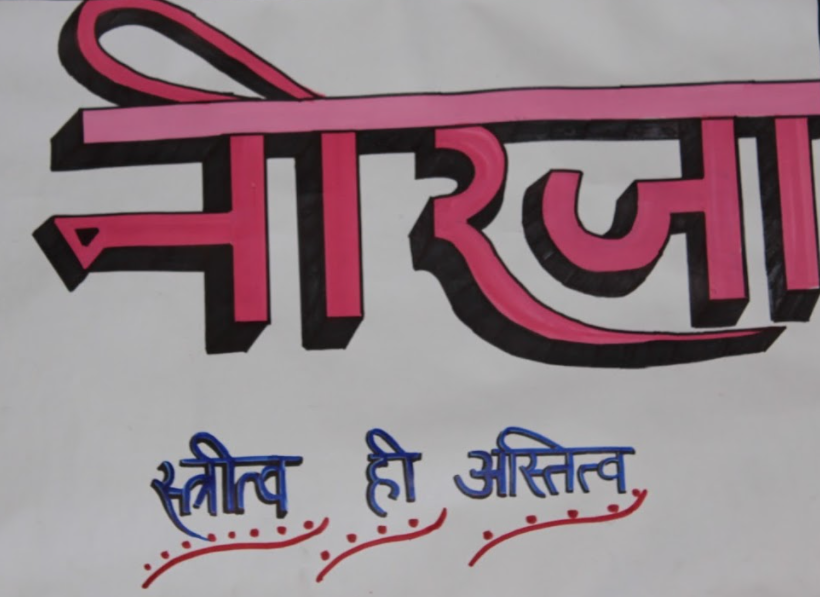 नीरजा
स्त्रीत्व ही अस्तित्व